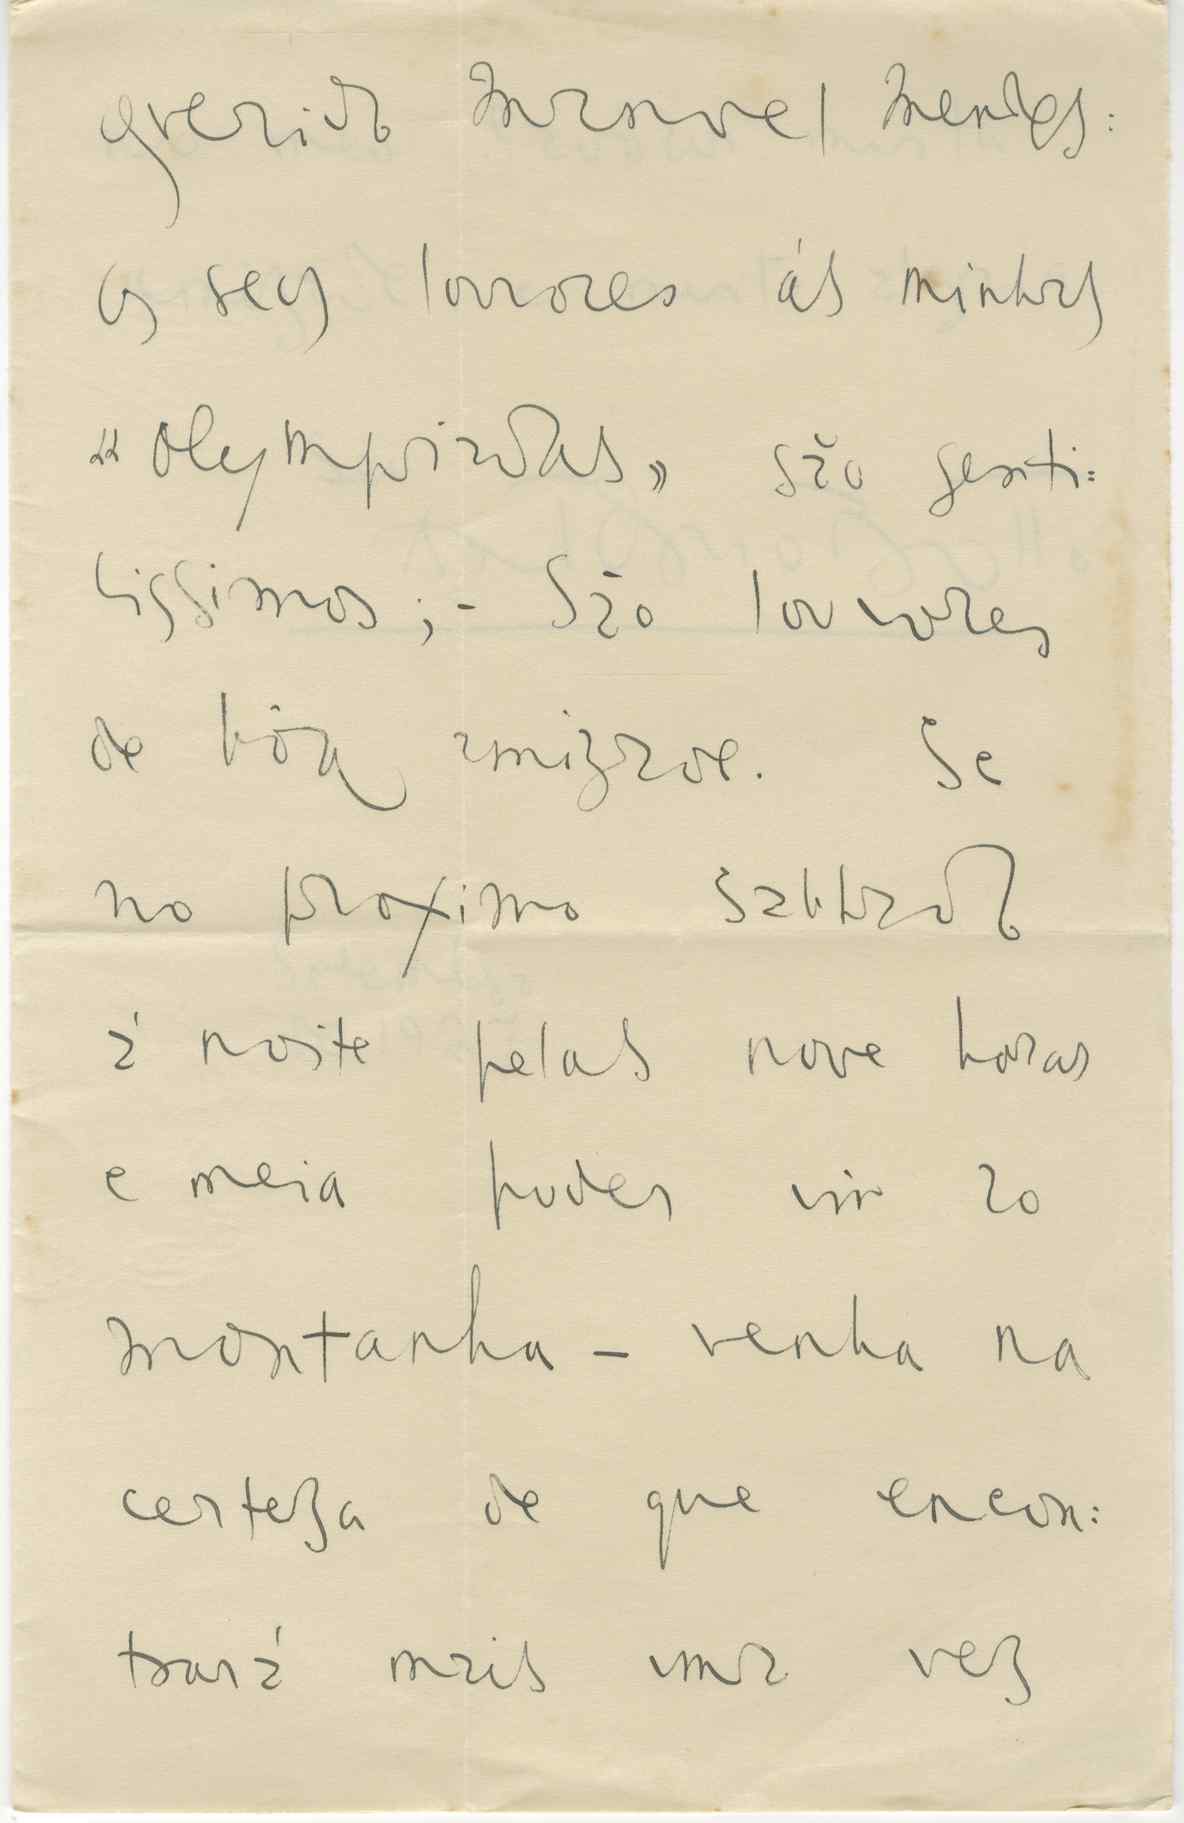 querido Manuel Mendes:
os seus louvores ás minhas
«Olympiadas» são genti:
lissimos;- São louvores
de bôa amizade. Se
no proximo sabbado
á noite pelas nove horas
e meia puder vir ao
montanha - venha na
certeza de que encon:
trará mais uma vez